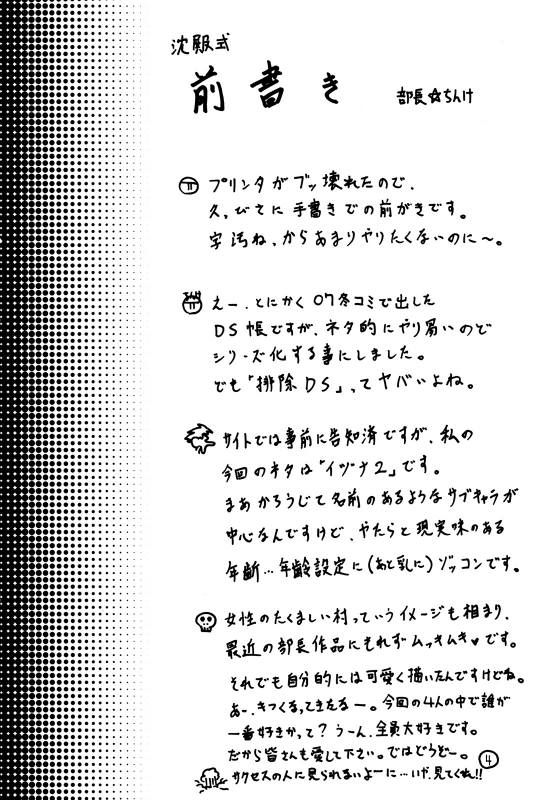 沈殿式
前書き
部長☆ちんけ
プリンタがブッ壊れたので、
久々びさに手書きでの前がきです。
字汚ね、からあまりやりたくないのに〜。
えー、とにかく07冬コミで出した
DS帳ですが、ネタ的にやり易いので
シリーズ化する事にしました。
でも「排除DS」、ってヤバいよね。
サイトでは事前に告知済ですが、私の
今回のネタは「イヅナ2」です。
まあかろうじて名前のあるようなサブキャラが
中心なんですけど、やたらと現実味のある
年齢…年齢設定に(あと乳に)ゾッコンです。
女性のたくましい村っていうイメージも相まり、
最近の部長作品にもれずムッキムキ♥です。
それでも自分的には可愛く描いたんですけどね。
あー、きつくる、てきたるー。今回の4人の中で誰が
一番好きかって?うーん、全員大好きです。
だから皆さんも愛して下さい。ではどうぞー。
サクセスの人に見られないよーに…いや、見てくれ!!
4